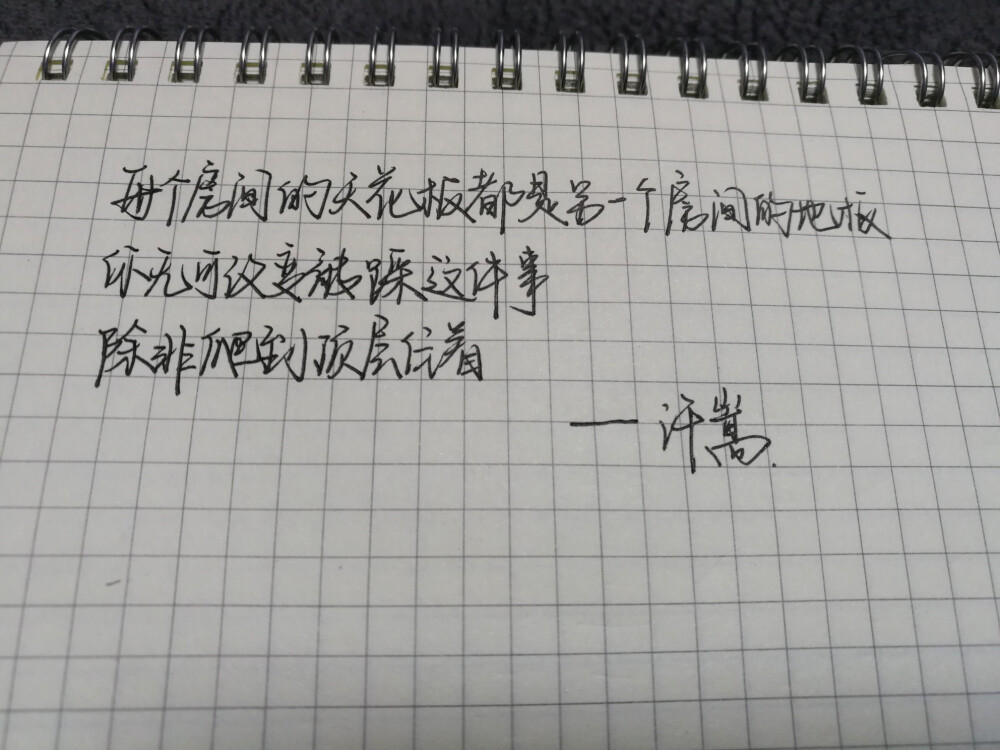 每个房间的天花板都是另一个房间的地板
你无可改变被踩这件事
除非爬到顶层住着
——许嵩.